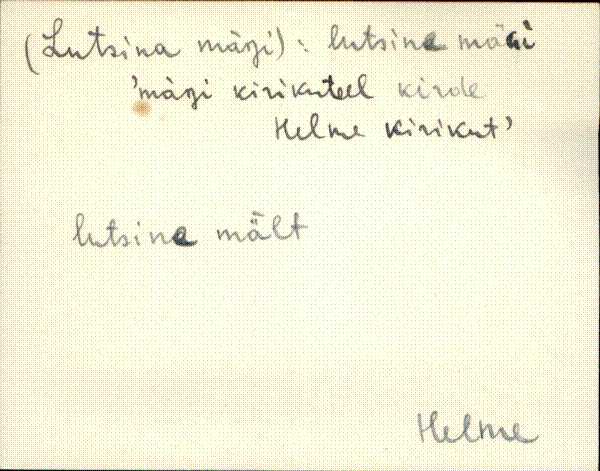 (Lutsina mägi): lutsina mägi
'mägi kirikuteel kirde
Helme kirikut'
lutsina mält
Helme